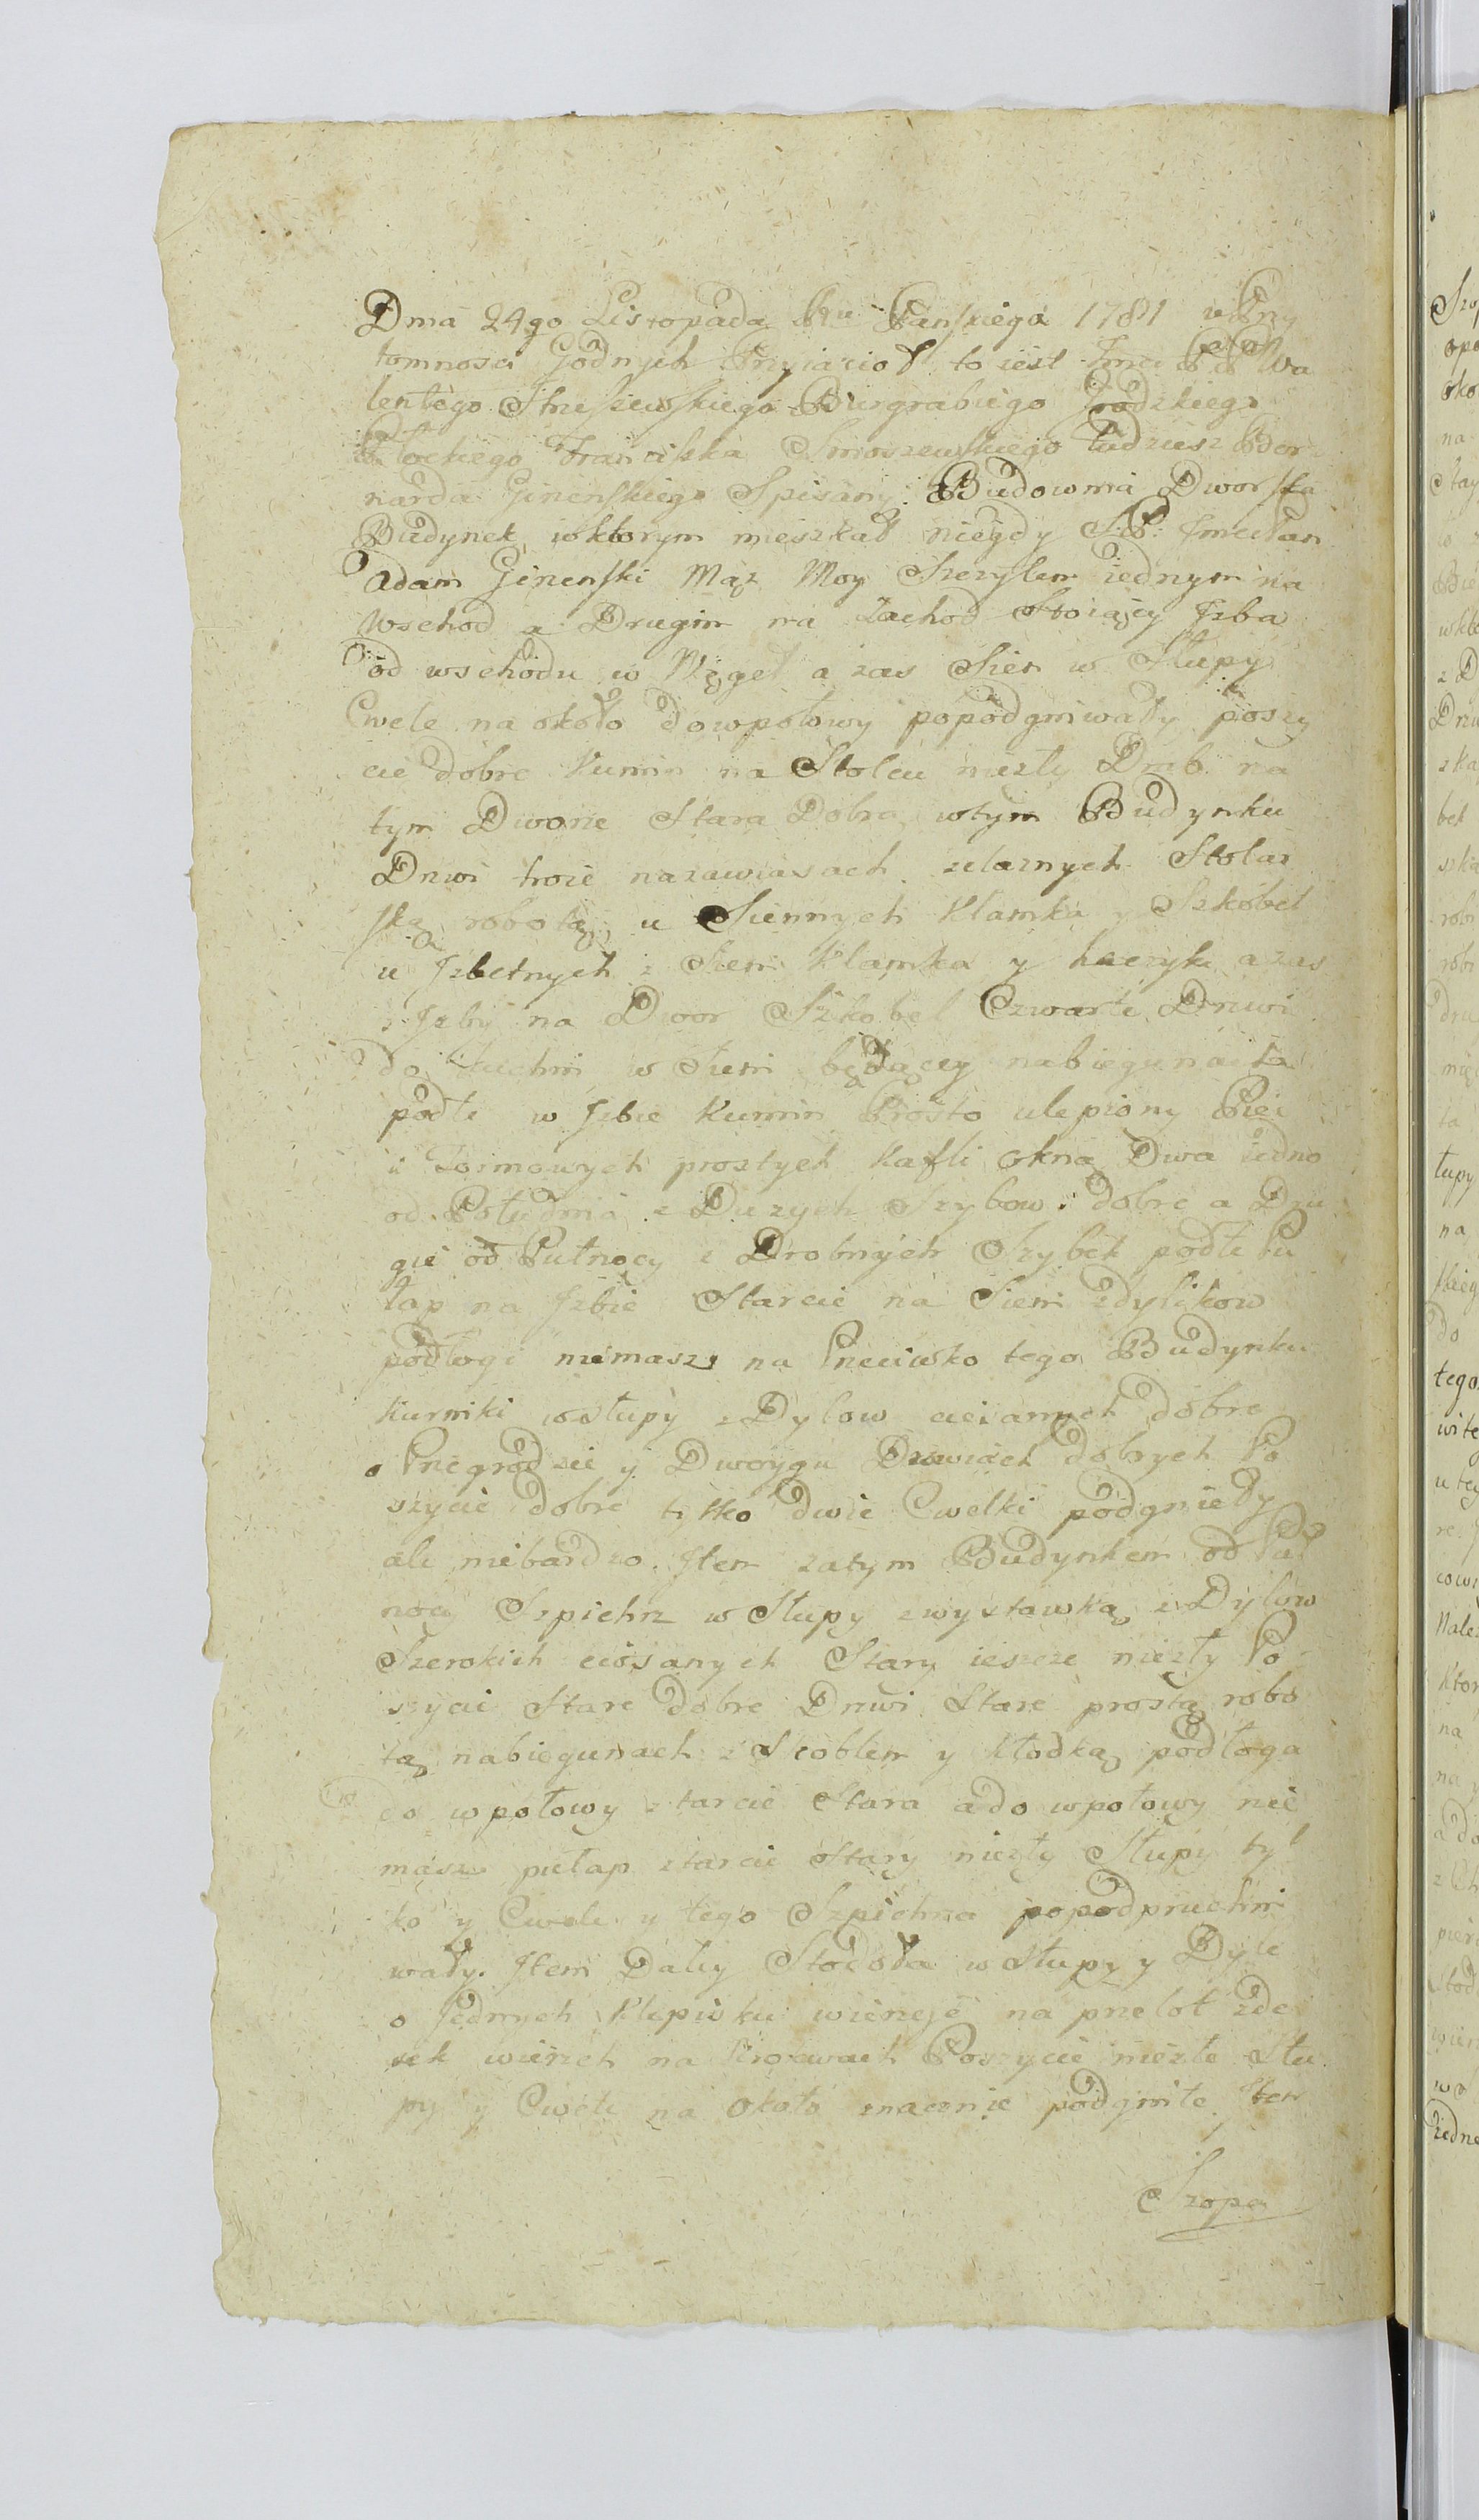 Dnia 24go Listopada Rku Panskiego 1781 w Przy
tomnosci Godnych Przyiacioł to iest Jmci PP Wa
lentego Strzeszewskiego Burgrabiego Grodzkiego
Płockiego Franciszka Smoszewskiego tudziesz Ber
narda Ginenskiego Spisany Budownia Dworska
Budynek wktorym mieszkał niegdy S:P: Jmci Pan
Adam Ginenski Mąz Moy Szczytem iednym na
Wschod a Drugim na Zachod Stoiący Jzba
od wschodu w Węgeł a zas Sien w Słupy
Cwele na około dowpołowy popodgniwały poszy
cie dobre Kumin na Stolcu niezły Drab. na
tym Dworze Stara Dobra wtym Budynku
Drzwi troie nazawiasach zelaznych Stolar
ską robotą u Siennych Klamka y Szkobel
u Jzbetnych z Sieni Klamka y haczyk a zas
z Jzby na Dwor Szkobel Czwarte Drzwi
do Kuchni w Sieni będącey nabiegunach
podłe w Jzbie Kumin Prosto ulepiony Piec
z Formowych prostych Kafli okna Dwa iedno
od Południa z Duzych Szybow dobre a Dru
gie od Pułnocy z Drobnych Szybek podłe Pu
łap na Jzbie Starcie na Sieni zdylikow
podłogi niemasz na Przeciwko tego Budynku
Kurniki wsłupy z Dylow ciosanych dobre
o Przegrodzie y Dwoygu Drzwiach dobrych Po
szycie dobre tylko dwie Cwelki podgnieły
ale niebardzo. Jtem zatym Budynkem od Puł
nocy Szpichrz w Słupy zwystawką z Dylow
Szerokich ciosanych Stary ieszcze niezły Po
szycie Stare dobre Drzwi Stare prostą robo
tą nabiegunach z Skoblem y Kłodką podłoga
do wpołowy ztarcie Stara a do wpołowy nie
masz pułap ztarcie Stary niezły Słupy tyl
ko y Cwele y tego Szpichrza popodpruchni
wały. Jtem Daley Stodoła w Słupy y Dyle
o Jednych Klepisku wierzeje na przelot zde
sek wierzch na Krokwach Poszycie niezłe Słu
py y Cwele na około znacznie podgniłe Jtem
Szopa